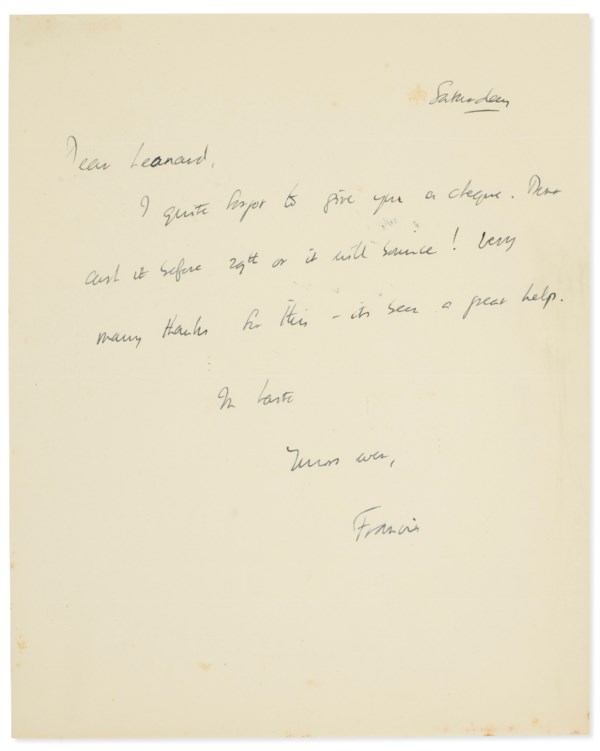 Saturday
Dear Leonard,
I quite forgot to give you a cheque. Dont
cash it before 29th or it will bounce! Very
many thanks for this - its been a great help.
In haste
Yours ever,
Francis